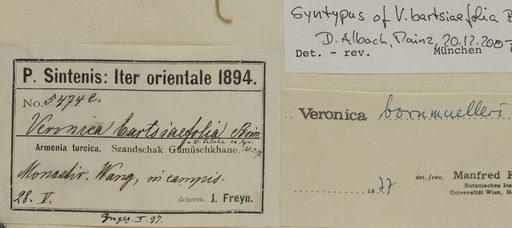 Syntypus of V. bartsiaefolia B
D. Albach, Mainz, 20.12.200
Det. - rev. München
P. Sintenis: Iter orientale 1894.
No. 5474c.
Veronica bartsiaefolia Boiss
Armenia turcica. Szandschak Gümüschkhane.
Monastir. Wang, in campis.
28. V. determ. J. Freyn.
Veronica bornmuelleri
1977 det./rev. Manfred
Botanisches Ins
Universität Wien,